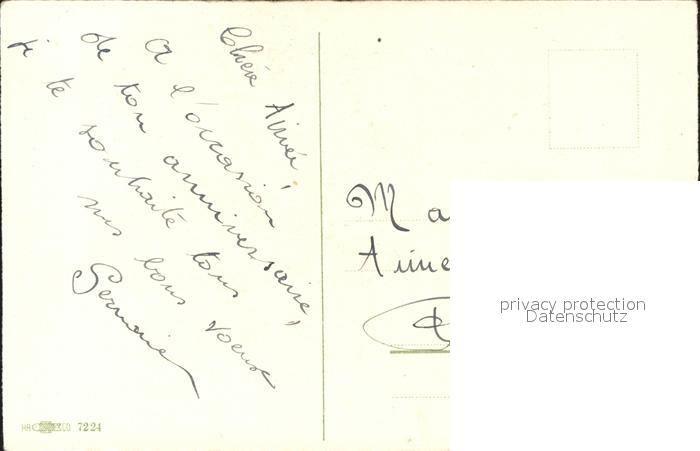 Chère Aimée,
A l'occasion
de ton anniversaire,
je te souhaite tous
mes bons voeux
Germaine
Ma
Aime
privacy protection
Datenschutz
7224